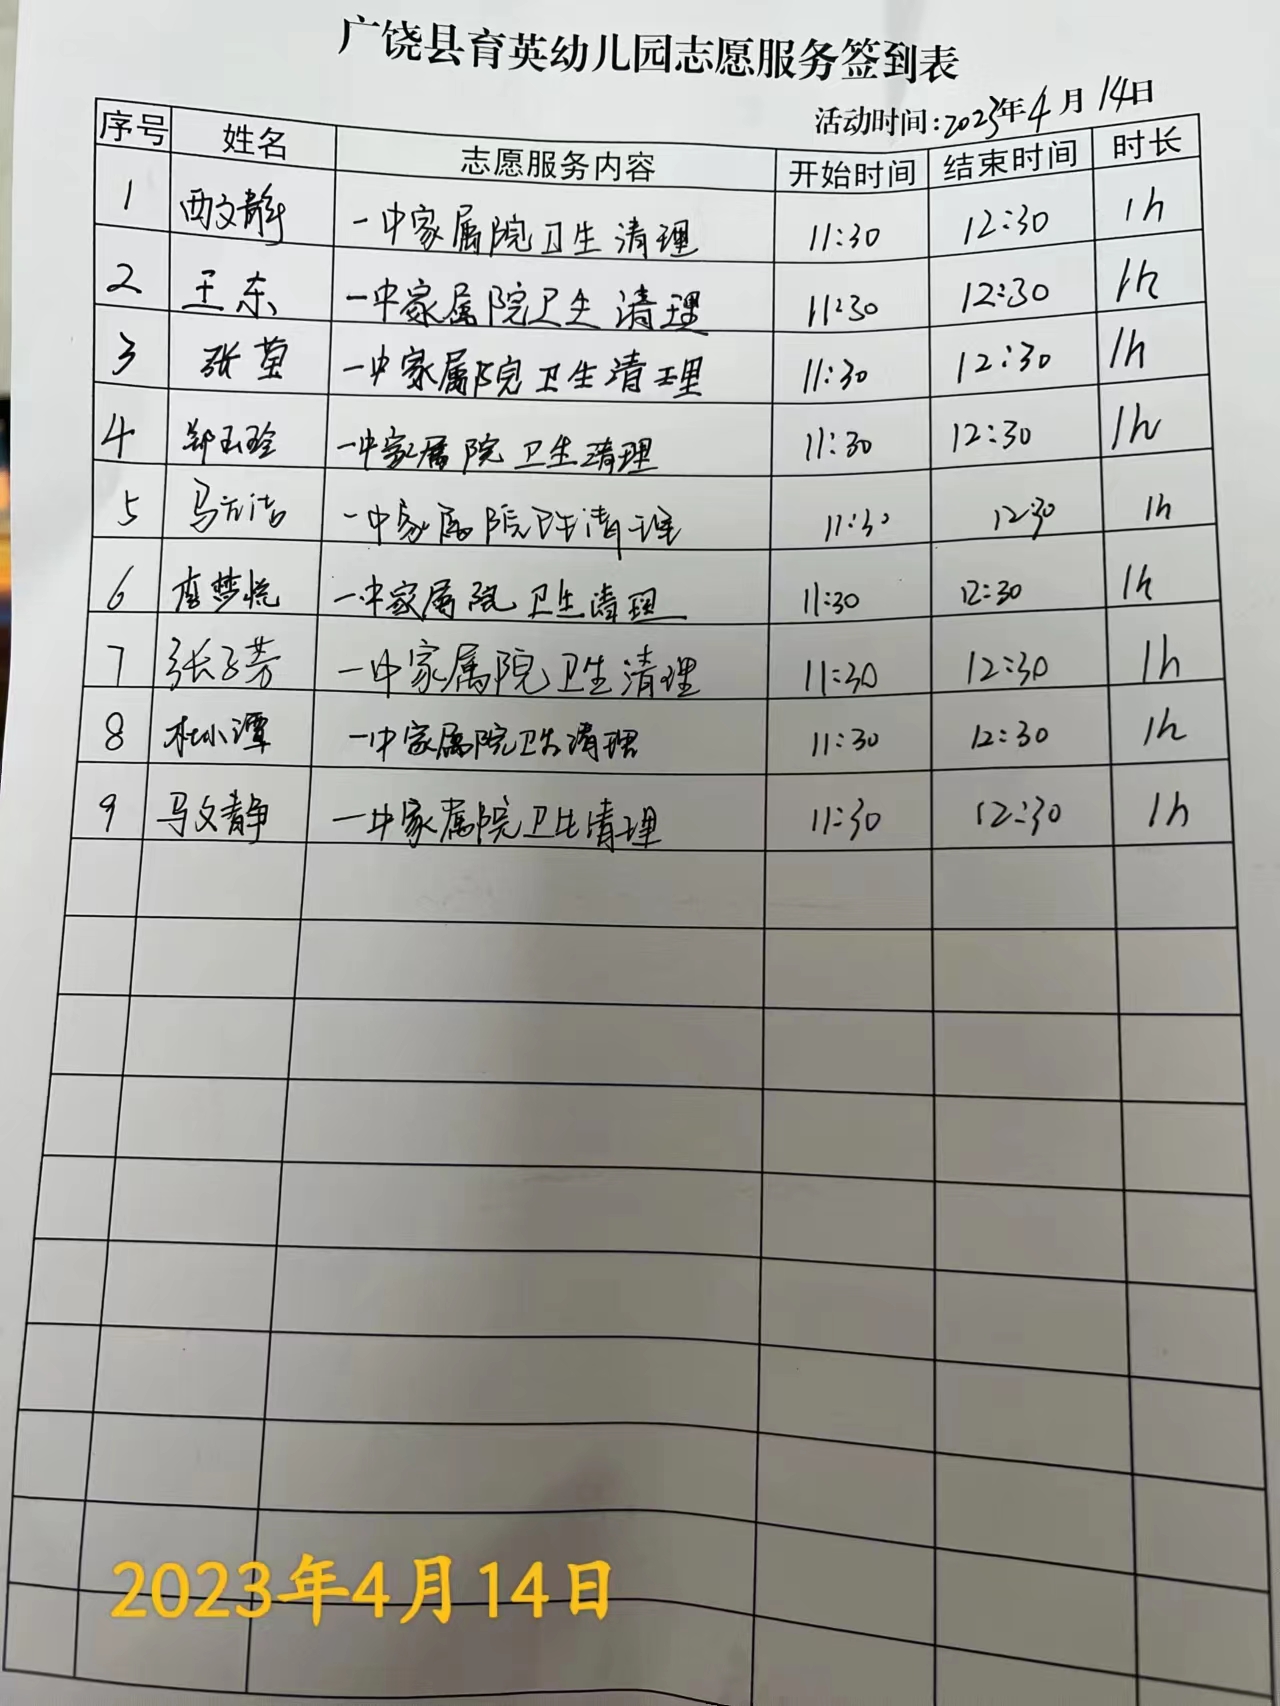 广饶县育英幼儿园志愿服务签到表
活动时间:2023年4月14日
序号 姓名 志愿服务内容 开始时间 结束时间 时长
1 西文静 一中家属院卫生清理 11:30 12:30 1h
2 王东 一中家属院卫生清理 11:30 12:30 1h
3 张莹 一中家属院卫生清理 11:30 12:30 1h
4 郑玉玲 一中家属院卫生清理 11:30 12:30 1h
5 马方洁 一中家属院卫生清理 11:30 12:30 1h
6 梦悦 一中家属院卫生清理 11:30 12:30 1h
7 张子芳 一中家属院卫生清理 11:30 12:30 1h
8 杜小潭 一中家属院卫生清理 11:30 12:30 1h
9 马文静 一中家属院卫生清理 11:30 12:30 1h
2023年4月14日